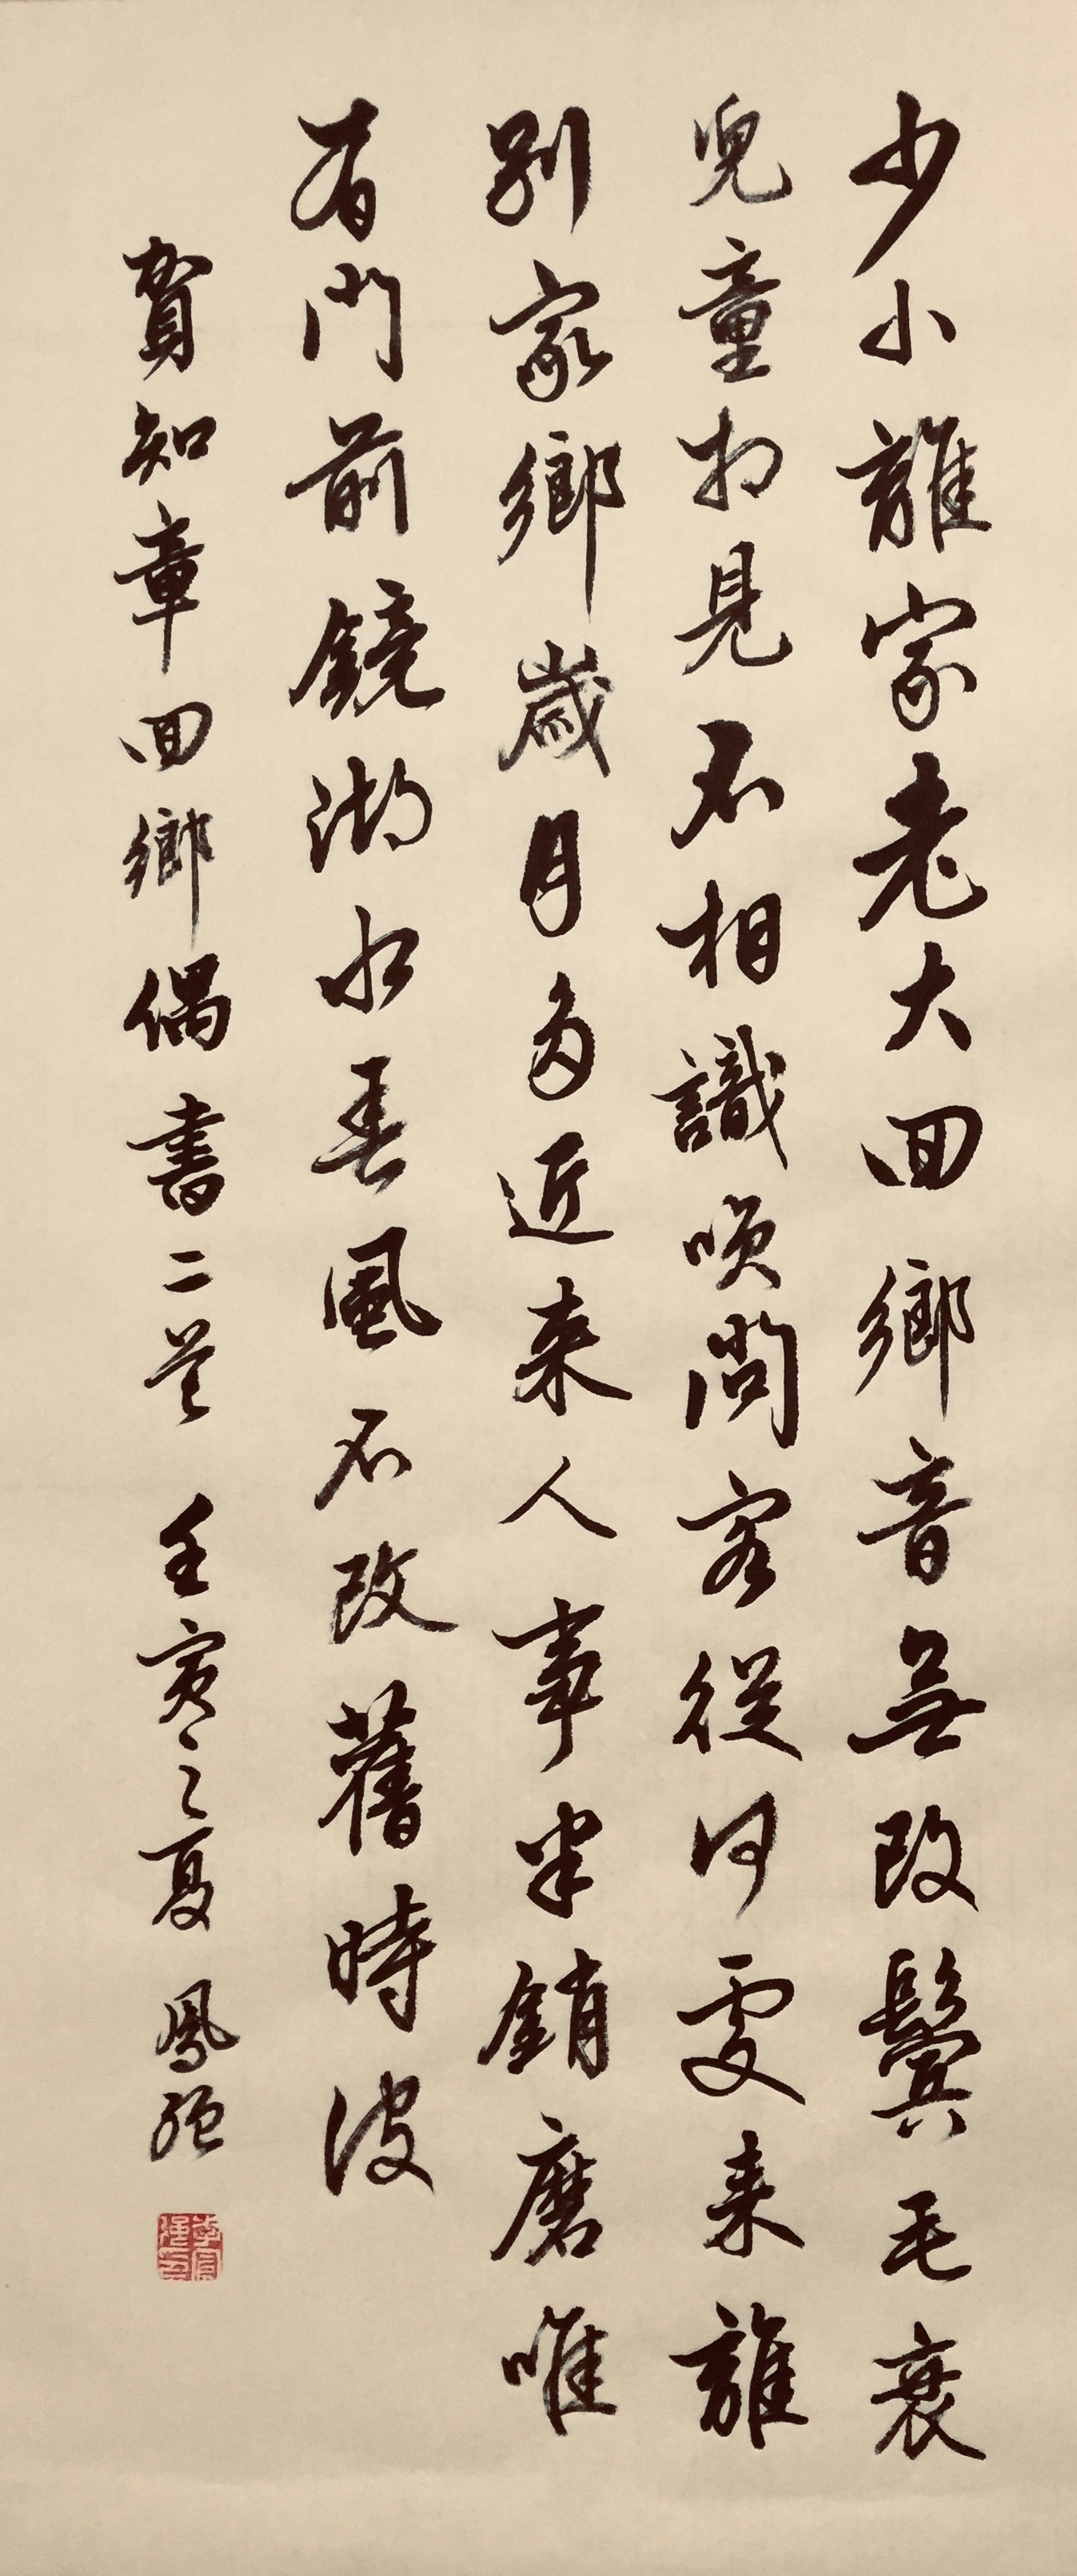 少小離家老大回鄉音無改鬢毛衰
兒童相見不相識咲問客從何處来離
別家鄉歲月多近来人事半銷磨唯
有門前鏡湖水春風不改舊時波
賀知章回鄉偶書二首 壬寅之夏 鳳強